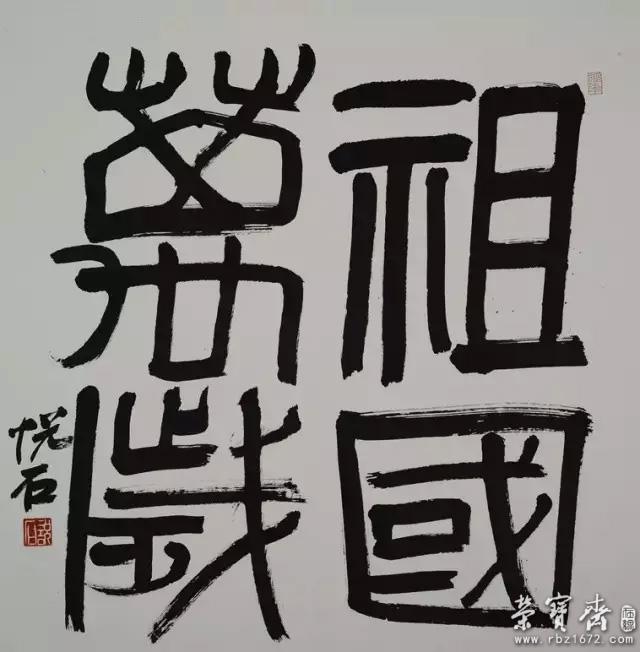 祖國
萬歲
悦石
榮寶齋
www.rbz1672.com